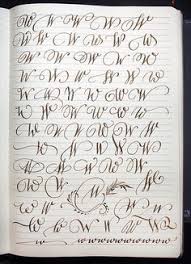 W W W W W W
W W W W W W
W W W W W W
W W W W W W W
W W W W W W
W W W W W W
W W W W W W
W W W W W
W W W W W W
W W W W
W W W W
W W W W W W
w wwwwwwwwwww